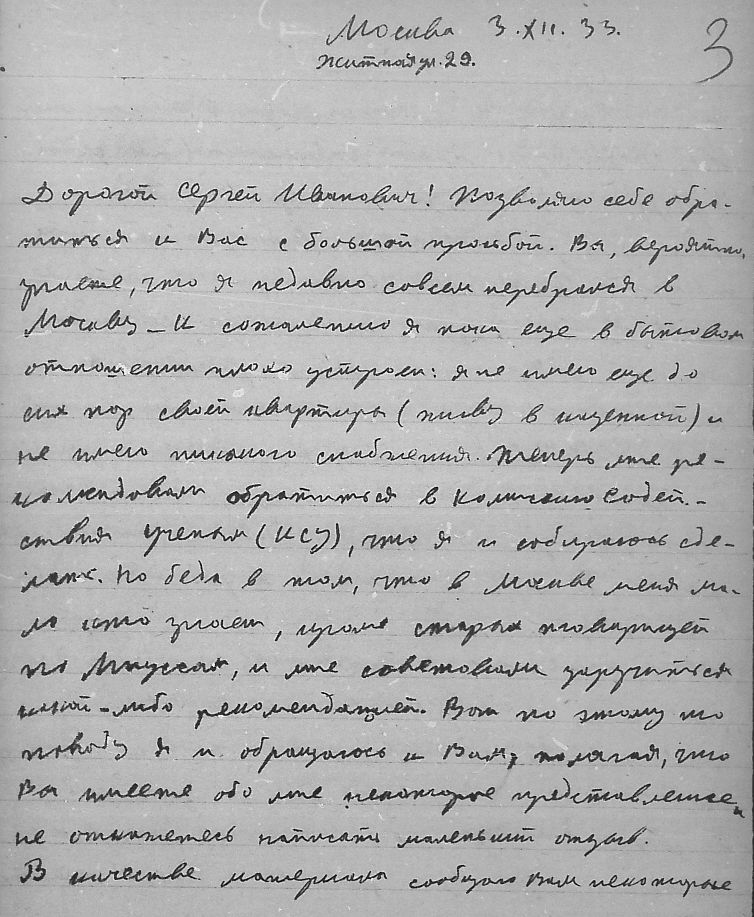 3
Москва 3.XII.33.
Житная ул. 29.
Дорогой Сергей Иванович! Позволяю себе обра-
титься к Вас с большой просьбой. Вы, вероятно,
знаете, что я недавно совсем перебрался в
Москву – К сожалению я пока еще в бытовом
отношении плохо устроен: я не имею еще до
сих пор своей квартиры (живу в ) и
не имею никакого снабжения. Теперь мне ре-
комендовали обратиться в Комиссию Содей-
ствия Ученым (КСУ), что я и собираюсь сде-
лать. Но беда в том, что в Москве меня ма-
ло кто знает, кроме старых товарищей
по , и мне советовали заручиться
какой-либо рекомендацией. Вот по этому то
поводу я и обращаюсь к Вам, полагая, что
Вы имеете обо мне некоторое представление и
не откажетесь написать маленький отзыв.
В качестве материала сообщаю Вам некоторые